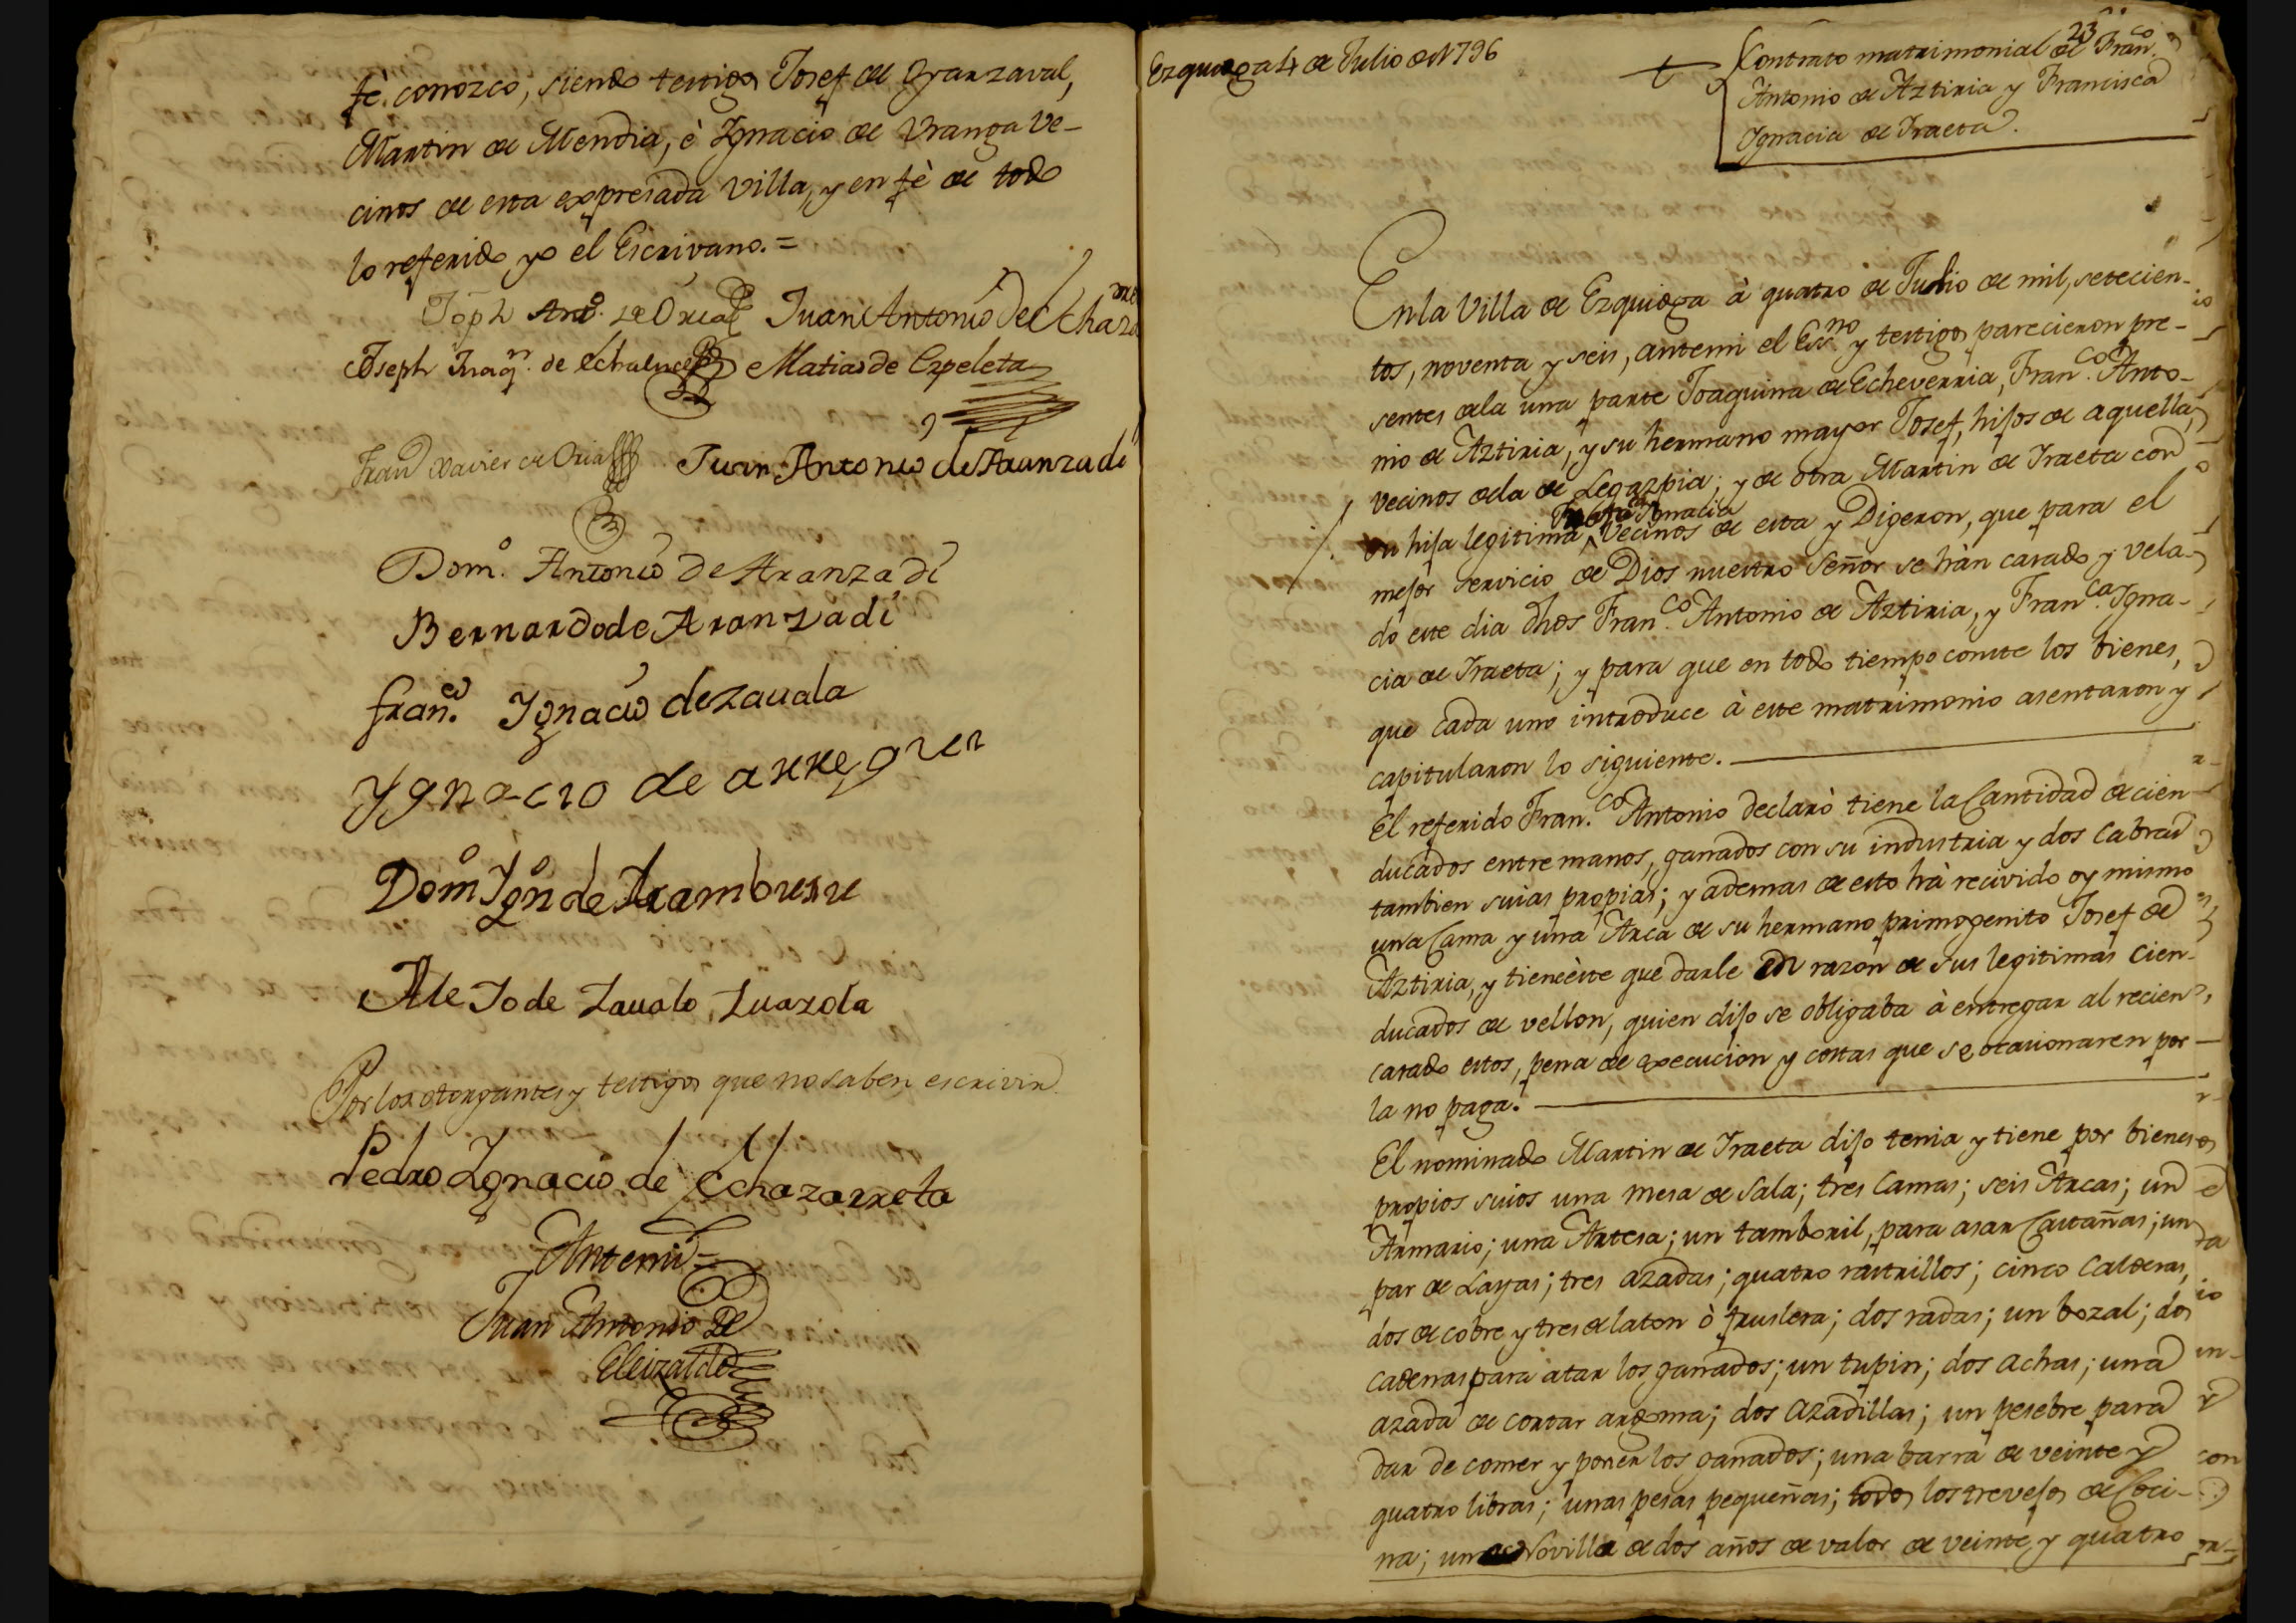 fè. conozco, siendo testigos Josef de Oranzaval,
Martin de Mendia, è Ygnacio de Uranga ve-
cinos de esta expresada Villa, y en fè de todo
lo referido yo el Escrivano.=
Joph Anto. de Oria Juan Antonio de Echazarreta
Joseph Juaqn. de Echaluce Matias de Ezpeleta
Franco Xavier de Oria Juan Antonio de Aranzadi
Domo. Antonio de Aranzadi
Bernardo de Aranzadi
Franco. Ygnacio de Zavala
Ygnacio de arregui
Domo Ygno de Arambururu
Alejo de Zavala Zuazola
Por los otorgantes y testigos que no saben escrivir
Pedro Ygnacio de Echazarreta
Antemi=
Juan Antonio de
Eleizalde
23
Ezquioga 4 de Julio de 1796
Contrato matrimonial de Franco.
Antonio de Aztiria y Francisca
Ygnacia de Iraeta.
En la Villa de Ezquioga à quatro de Julio de mil, setecien-
tos, noventa y seis, antemi el Essno. y testigos parecieron pre-
sentes de la una parte Joaquina de Echeverria, Franco. Anto-
nio de Aztiria, y su hermano mayor Josef, hijos de aquella,
vecinos de la de Legazpia; y de otra Martin de Iraeta con
Franca Ygnacia
su hija legitima, vecinos de esta y Digeron, que para el
mejor servicio de Dios nuestro Señor se hàn casado y vela-
do este dia dhos Franco. Antonio de Aztiria, y Franca. Ygna-
cia de Iraeta; y para que en todo tiempo conste los bienes,
que cada uno introduce à este matrimonio asentaron y
capitularon lo siguiente.
El referido Franco. Antonio declarò tiene la Cantidad de cien
ducados entre manos, ganados con su industria y dos Cabras
tambien suias propias; y ademas de esto hà recivido oy mismo
una Cama y una Arca de su hermano primogenito Josef de
Aztiria, y tiene èste que darle en razon de sus legitimas cien
ducados de vellon, quien dijo se obligaba à entregar al recien
casado estos, pena de execucion y costas que se ocasionaren por
la no paga.
El nominado Martin de Iraeta dijo tenia y tiene por bienes
propios suios una mesa de Sala; tres Camas; seis Arcas; un
Armario; una Artesa; un tamboril, para asar Castañas; un
par de Layas; tres azadas; quatro rastrillos; cinco Calderas,
dos de cobre y tres de laton ò fruslera; dos radas; un bozal; dos
cadenas para atar los ganados; un tupin; dos achas; una
azada de cortar argoma; dos azadillas; un pesebre para
dar de comer y poner los ganados; una barra de veinte y
quatro libras; unas pesas pequeñas; todos los trevejos de Coci-
na; una Novilla de dos años de valor de veinte y quatro